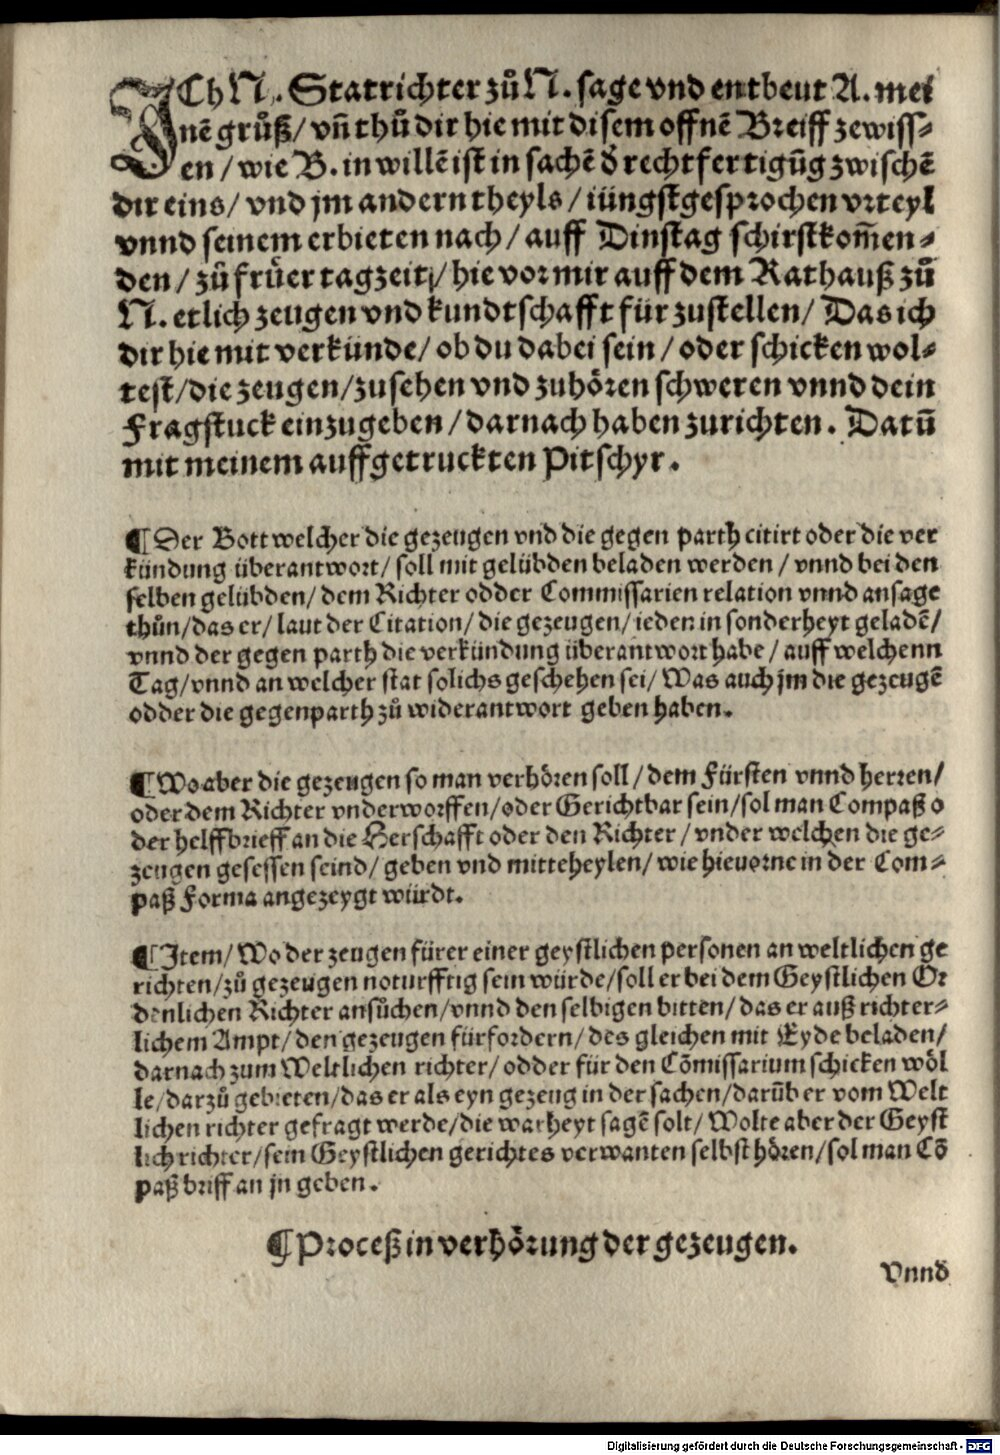 ICh N. Statrichter zů N. sage vnd entbeut A. mei
nẽ grůß/ vñ thů dir hie mit disem offnẽ Breiff zewiss⸗
en/ wie B. in willẽ ist in sachẽ d̕ rechtfertigũg zwischẽ
dir eins/ vnd jm andern theyls/ iüngst gesprochen vrteyl
vnnd seinem erbieten nach/ auff Dinstag schirstkom̃en⸗
den/ zů frůer tagzeit/ hie vor mir auff dem Rathauß zů
N. etlich zeugen vnd kundtschafft für zustellen/ Das ich
dir hie mit verkünde/ ob du dabei sein/ oder schicken wol⸗
test/ die zeugen/ zusehen vnd zuhören schweren vnnd dein
Fragstuck einzugeben/ darnach haben zurichten. Datũ
mit meinem auffgetruckten Pitschyr.
¶ Der Bott welcher die gezeugen vnd die gegen parth citirt oder die ver
kündung überantwort/ soll mit gelübden beladen werden/ vnnd bei den
selben gelübden/ dem Richter odder Commissarien relation vnnd ansage
thůn/ das er/ laut der Citation/ die gezeugen/ ieden in sonderheyt geladẽ/
vnnd der gegen parth die verkündung überantwort habe/ auff welchenn
Tag/ vnnd an welcher stat solichs geschehen sei/ Was auch jm die gezeugẽ
odder die gegenparth zů widerantwort geben haben.
¶ Wo aber die gezeugen so man verhören soll/ dem Fürsten vnnd herren/
oder dem Richter vnderworffen/ oder Gerichtbar sein/ sol man Compaß o
der helffbrieff an die Herschafft oder den Richter/ vnder welchen die ge⸗
zeugen gesessen seind/ geben vnd mitteheylen/ wie hieuorne in der Com⸗
paß Forma angezeygt würdt.
¶ Item/ Wo der zeugen fürer einer geystlichen personen an weltlichen ge
richten/ zů gezeugen noturfftig sein würde/ soll er bei dem Geystlichen Or
denlichen Richter ansůchen/ vnnd den selbigen bitten/ das er auß richter⸗
lichem Ampt/ den gezeugen fürfordern/ des gleichen mit Eyde beladen/
darnach zum Weltlichen richter/ odder für den Cõmissarium schicken wöl
le/ darzů gebieten/ das er als eyn gezeug in der sachen/ darüber vom Welt
lichen richter gefragt werde/ die warheyt sagẽ solt/ Wolte aber der Geyst
lich richter/ sein Geystlichen gerichtes verwanten selbst hören/ sol man Cõ
paß briff an jn geben.
¶ Proceß in verhörung der gezeugen.
Vnnd
Digitalisierung gefördert durch die Deutsche Forschungsgemeinschaft - DFG